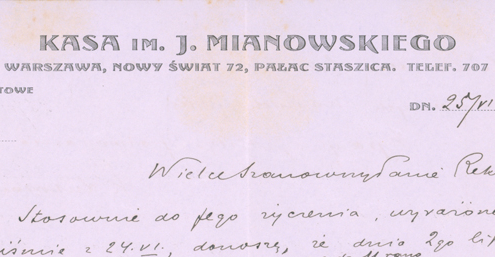 KASA IM. J. MIANOWSKIEGO
WARSZAWA, NOWY ŚWIAT 72, PAŁAC STASZICA. TELEF. 707
TOWE
DN. 25/VI
Wielce Szanowny Panie Rek
Stosownie do Jego życzenia, wyrażone
iśmie z 24.VI., donoszę, że dnia 2go lip